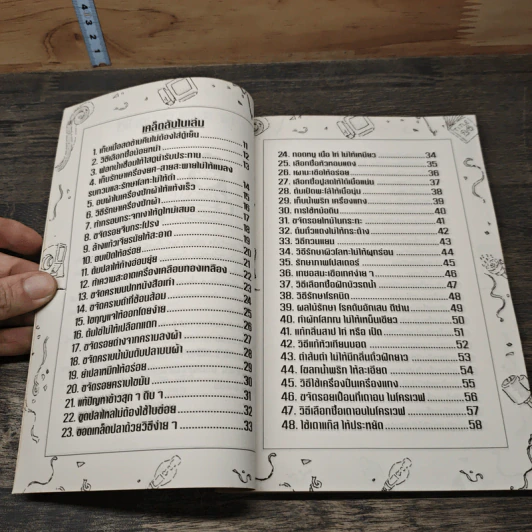 เคล็ดลับในเล่ม
1. เก็บเนื้อสดข้ามคืนไม่ต้องใส่ตู้เย็น 11
2. วิธีเลือกซื้อน้อยหน่า 12
3. ฟอกน้ำเชื่อมให้ใสดูน่ารับประทาน
4. เก็บรักษาเครื่องยศ
14
5. อบผ้าในเครื่องซักผ้าให้แห้งเร็ว 15
6. วิธีรักษาเครื่องซักผ้า 16
7. ทำกรอบกระจกเงาให้ดูใหม่เสมอ 17
8. ขจัดรอยจีบกระโปรง 18
9. ล้างแก้วเจียระไนให้สะอาด
10. อบเป็ดให้อร่อย 20
11. ต้มปลาให้ก้างอ่อนยุ่ย 21
12. ทำความสะอาดเครื่องเคลือบทองเหลือง 22
13. ขจัดคราบบนปกหนังสือเก่า 23
14. ขจัดคราบดำที่ช้อนส้อม 24
15. ไขกุญแจให้ออกโดยง่าย 25
16. ต้มไข่ไม่ให้เปลือกแตก 26
17. ขจัดรอยด่างจากคราบลงผ้า 27
18. ขจัดคราบน้ำมันตับปลาบนผ้า 28
19. ยำปลาหมึกให้อร่อย 29
20. ขจัดรอยคราบไขมัน 30
21. แก้ปัญหาข้าวสุก ๆ ดิบ ๆ 31
22. ขูดปลาไหลไม่ต้องใช้ใบข่อย 32
23. ขอดเกล็ดปลาด้วยวิธีง่าย ๆ 33
24. ทอดหมู เนื้อ ไก่ ไม่ให้เหนียว 34
25. เลือกซื้อหัวหอมแดง 35
26. เพาะเชื้อให้อร่อย 36
27. เลือกซื้อปลาสลิดให้เนื้อแน่น 37
28. ต้มเป็ดแก่ให้เนื้อนุ่ม 38
29. เก็บน้ำพริก เครื่องแกง 39
30. การใช้หม้อดิน 40
31. ขจัดรอยไหม้ในกระทะ 41
32. ต้มถั่วแดงไม่ให้กระด้าง 42
33. วิธีกวนแยม 43
34. วิธีรักษาผิวโลหะไม่ให้ผุกร่อน 44
35. รักษาภาพโปสเตอร์ 45
36. เกาะอสมะเขือเทศง่าย ๆ 46
37. วิธีเลือกซื้อฝักบัวรดน้ำ 47
38. วิธีรักษาโรคบิด 48
39. ผลไม้รักษา โรคตับอักเสบ ดีซ่าน 49
40. ทำผักโสภณ ไม่ให้เหม็นเขียว 50
41. แก้กลิ่นสาป ไก่ หรือ เป็ด 51
42. วิธีแก้หัวเทียนบอด 52
43. ทำส้มตำ ไม่ให้มีกลิ่นถั่วฝักยาว 53
44. โขลกน้ำพริก ให้ละเอียด 54
45. วิธีใช้เครื่องปั่นเครื่องแกง 55
46. ขจัดรอยเปื้อนที่เตาอบ ไมโครเวฟ 56
47. วิธีเลือกซื้อเตาอบไมโครเวฟ 57
48. ใช้เตาแก๊ส ให้ประหยัด 58